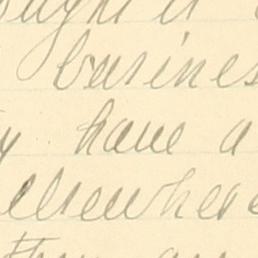 ought it
busines
y have a
elsewhere